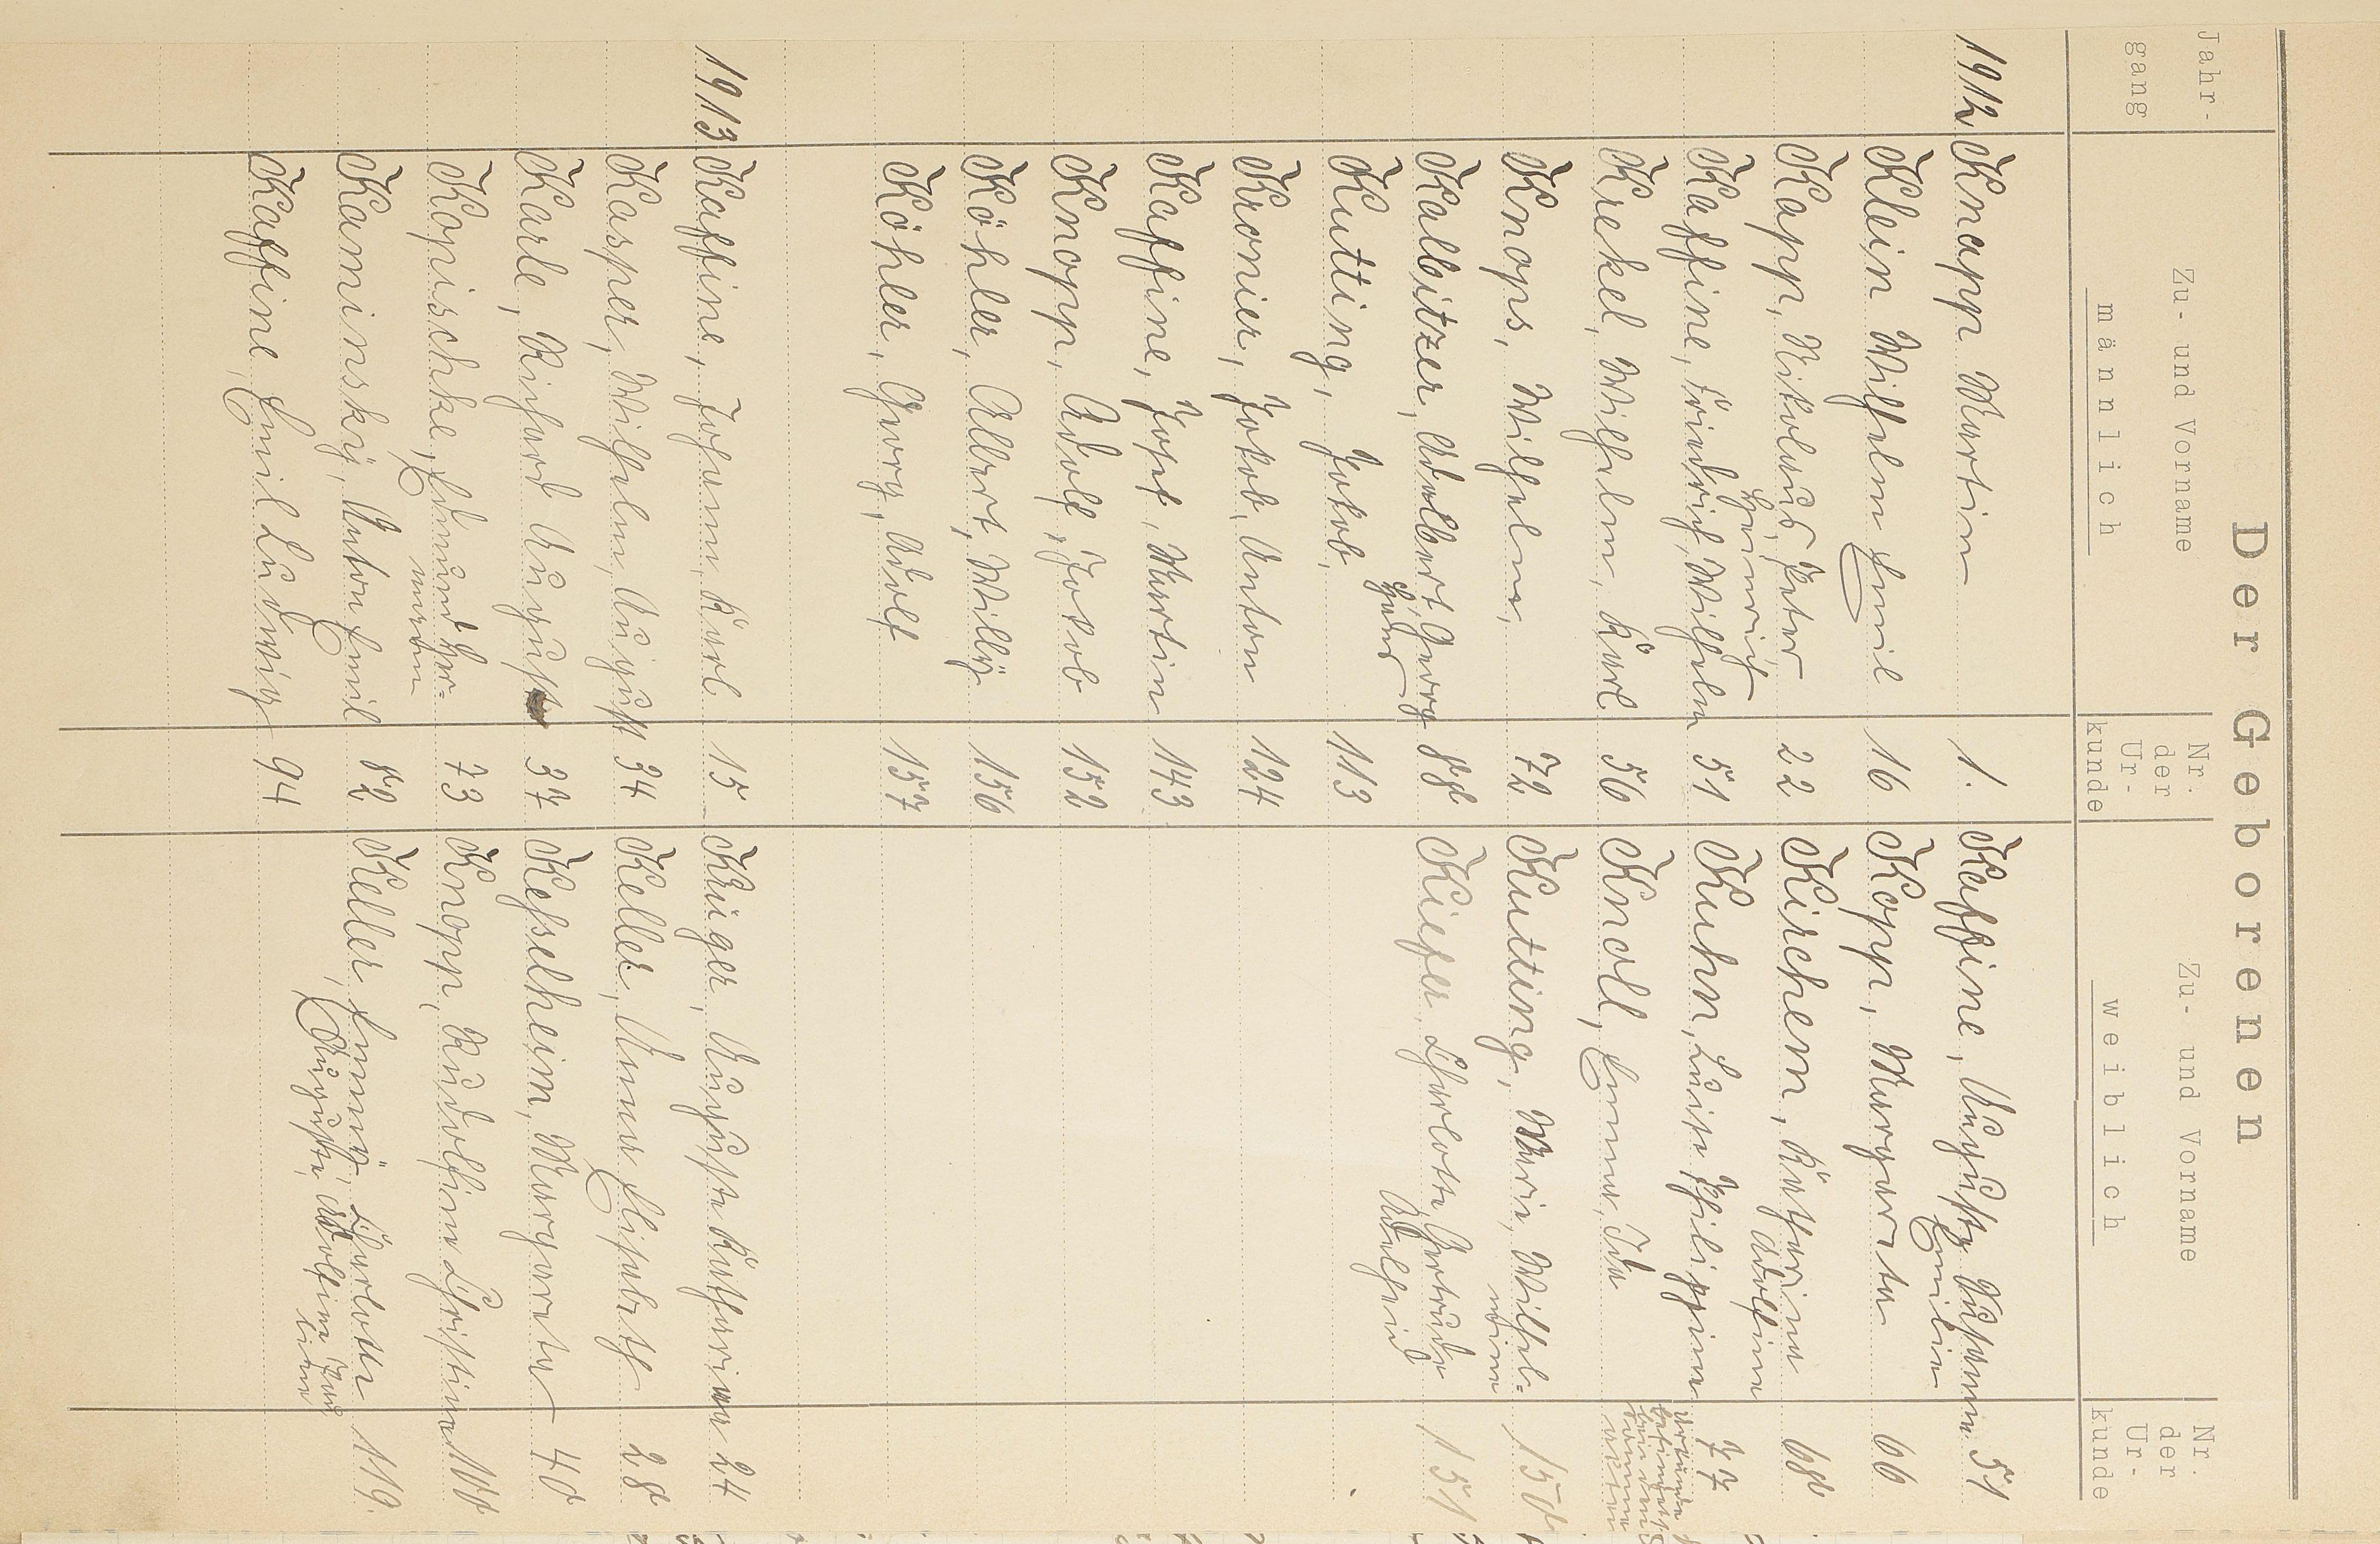 Der Geborenen
Jahr-
gang
Zu- und Vorname
männlich
Nr.
der
Ur-
kunde
Zu- und Vorname
weiblich
Nr.
der
Ur-
kunde
1912 Knapp Martin 1. Kaffine, Auguste Susanna 51
Emilie
Klein Wilhelm Emil 16 Kopp, Margareta 66
Kapp, Nikolaus, Peter 22 Kirchem, Katharina 68
Heinrich Adolfine
Kaffine, Friedrich, Wilhelm 51 Kuhn, Luise Philippine 77
Krekel, Wilhelm, Karl 56 Knoll, Emma, Ida
Urkunde
befindet
bei den
Knops, Wilhelm, 72 Kutting, Marie, Wilhel-
mine 150
Kalbitzer, Adalbert, Georg 88 Kiefer, Charlotte Gertrude 151
Hans Adelheid
Kutting, Jakob, 113
Kronier, Jakob, Anton 124
Kaffine, Josef, Martin 143
Knopp, Adolf, Jakob 152
Köhler, Albert, Willy 156
Köhler, Georg, Adolf 157
1913 Kaffine, Johann, Karl 15 Krüger, Auguste Katharina 24
Kasper, Wilhelm, August 34 Keller, Anna Elisabeth 28
Karle, Richard August 37 Kesselheim, Margareta 40
Kopischke, Edmund Her-
mann 73 Knopp, Rudolfine Christine 100
Kaminsky, Anton Emil 82 Keller, Emmi, Charlotte 119.
Auguste, Adolfine Pau
line
Kaffine, Emil Ludwig 94